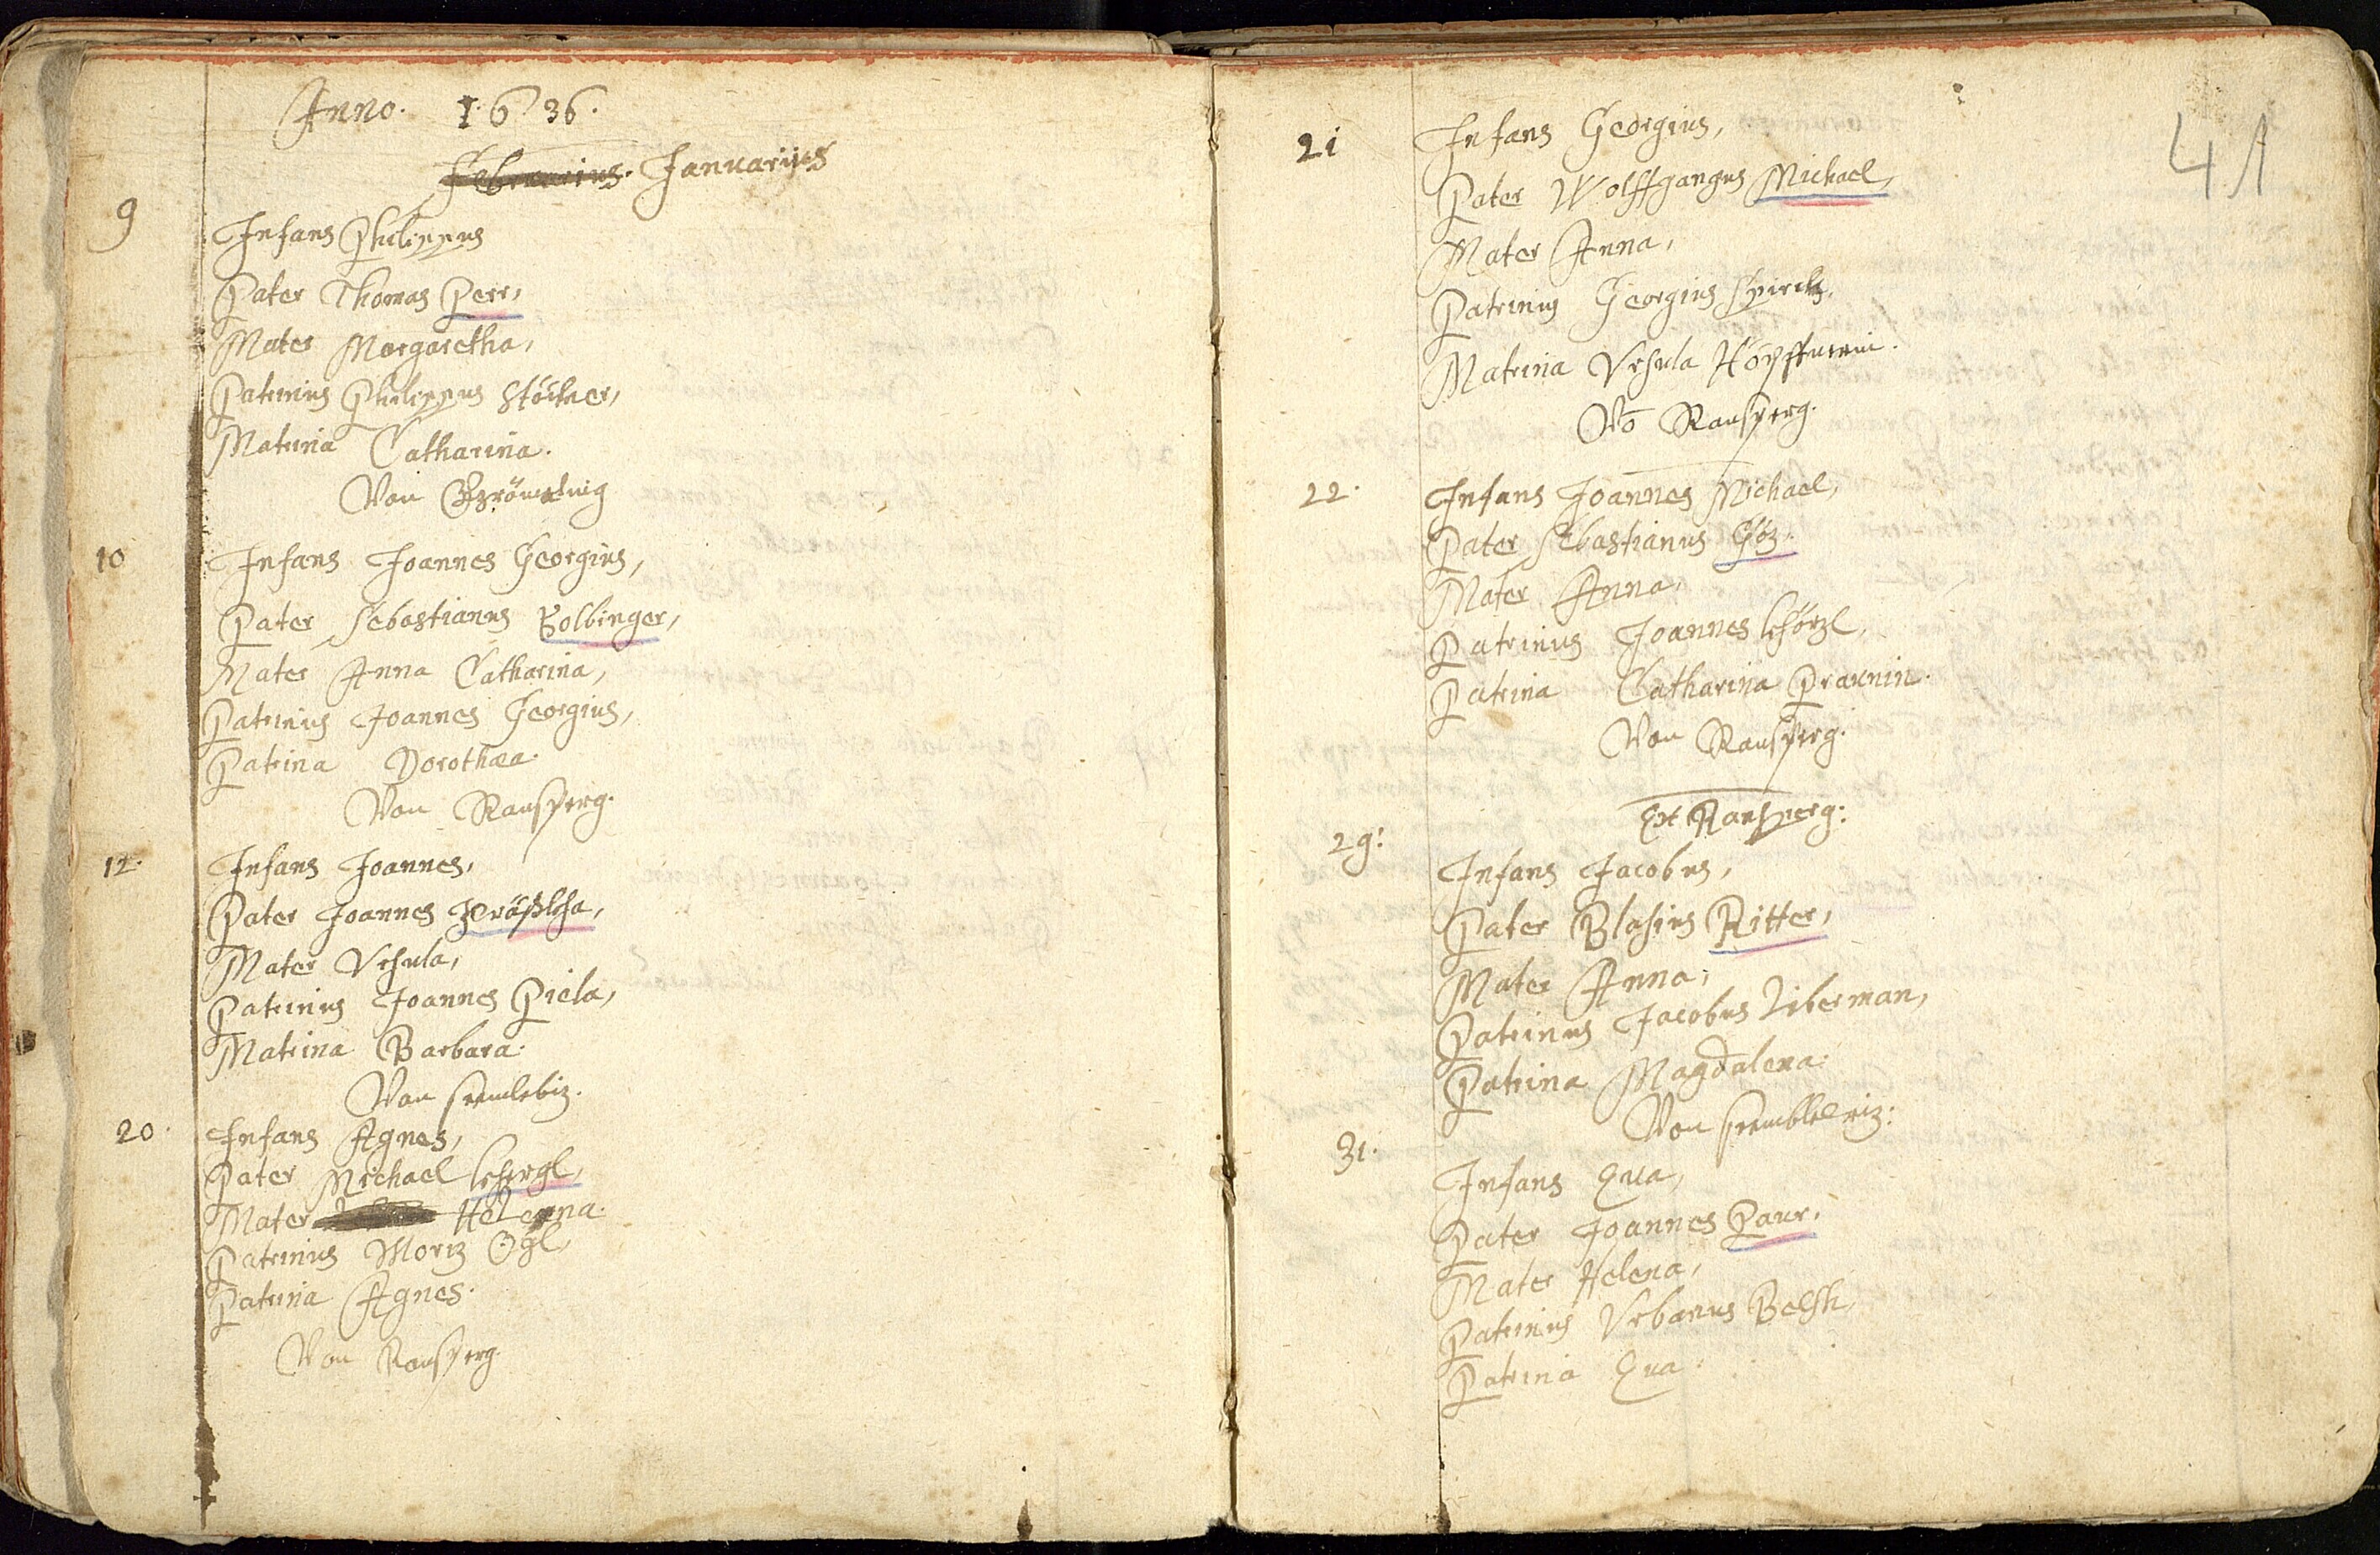 Anno. 1636.
Februarius. Januarius
9
Infans Philippus
Pater Thomas Perr,
Mater Margaretha,
Patrinus Philippus Stöckner,
Matrina Catharina.
Von
10
Infans Joannes Georgius,
Pater Sebastianus Bolbinger,
Mater Anna Catharina,
Patrinus Joannes Georgius,
Patrina Dorothæa.
Von Ransperg.
12.
Infans Joannes,
Pater Joannes
Mater Vrsula,
Patrinus Joannes Piela,
Matrina Barbara.
Von
20.
Infans Agnes,
Pater Michael
Mater Helenna.
Patrinus Moriz Ögl,
Patrina Agnes.
Von Ransperg.
41
21
Infans Georgius,
Pater Wolffgangus Michael,
Mater Anna,
Patrinus Georgius
Matrina Vrsula Höpffnerin.
Võ Ransperg.
22.
Infans Joannes Michael,
Pater Sebastianus Göz.
Mater Anna,
Patrinus Joannes
Patrina Catharina Praunin.
Von Ransperg.
Ex Ransperg:
29:
Infans Jacobus,
Pater Blasius Ritter,
Mater Anna,
Patrinus Jacobus Liberman,
Patrina Magdalena.
Von
31.
Infans Eua,
Pater Joannes Paur,
Mater Helena,
Patrinus Vrbanus Belsk,
Patrina Eua.